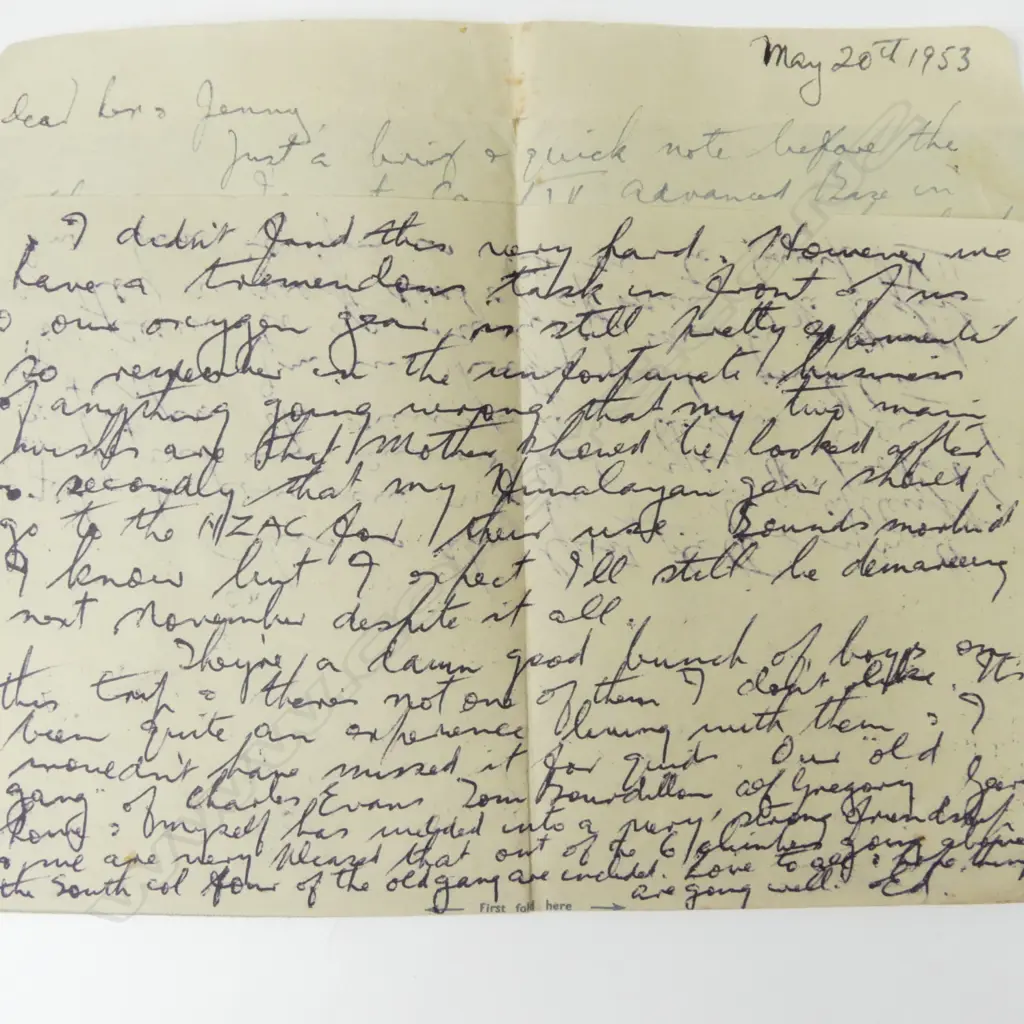 May 20th 1953
Dear & Jenny,
Just a brief & quick note before the
Advanced Base in
I didn't find this very hard. However we
have a tremendous task in front of us
& our oxygen gear is still pretty experimental
so remember in the unfortunate business
of anything going wrong that my two main
wishes are that Mother should be looked after
& secondly that my Himalayan gear should
go to the NZAC for their use. Sounds morbid
I know but I expect I'll still be
next November despite it all.
They're a damn good bunch of boys on
this trip & there's not one of them I don't like. It's
been quite an experience living with them & I
wouldn't have missed it for quids. Our "old
gang" of Charles Evans Tom Bourdillon Alf Gregory George
Lowe & myself has welded into a very strong friendship
& we are very pleased that out of the 6 climbers going above
the South Col four of the old gang are included. Love to all & hope things
are going well. Ed.
First fold here